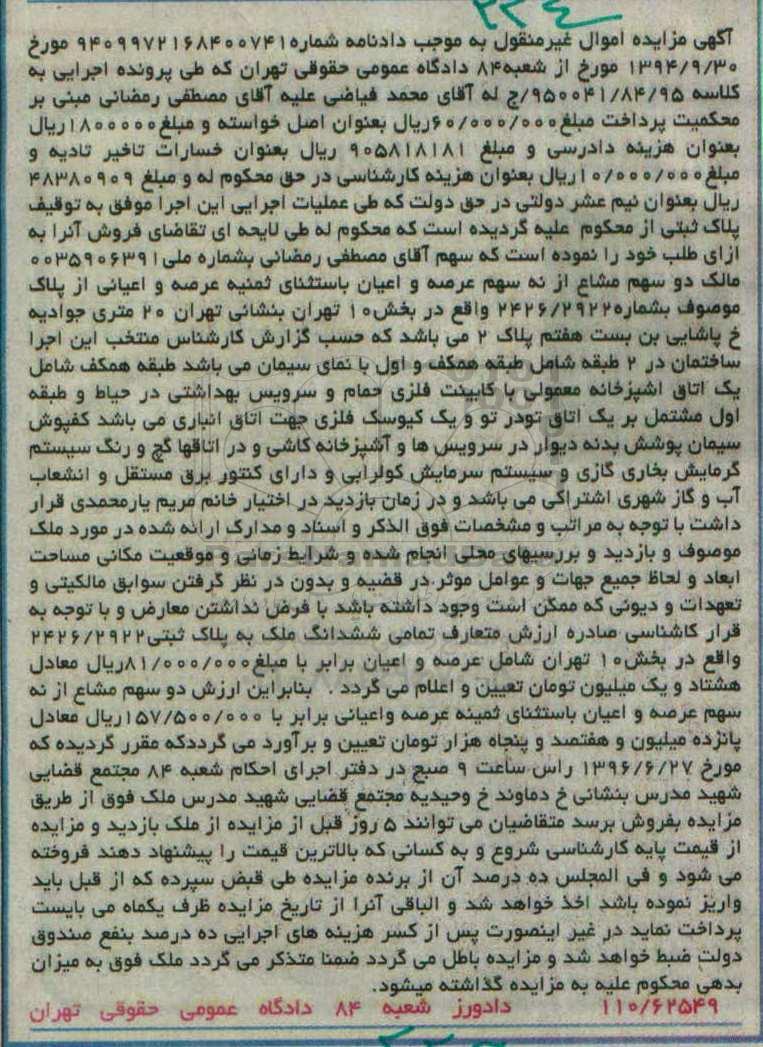 آگهی مزایده اموال غیرمنقول به موجب دادنامه شماره۹۴۰۹۹۷۲۱۶۸۴۰۰۷۴۱ مورخ
۱۳۹۴/۹/۳۰ مورخ از شعبه۸۴ دادگاه عمومی حقوقی تهران که طی پرونده اجرایی به
کلاسه ۹۵۰۰۴۱/۸۴/۹۵/ج له آقای محمد فیاضی علیه آقای مصطفی رمضانی مبنی بر
محکمیت پرداخت مبلغ۶۰/۰۰۰/۰۰۰ریال بعنوان اصل خواسته و مبلغ۱۸۰۰۰۰۰ریال
بعنوان هزینه دادرسی و مبلغ ۹۰۵۸۱۸۱۸۱ ریال بعنوان خسارات تاخیر تادیه و
مبلغ۱۰/۰۰۰/۰۰۰ریال بعنوان هزینه کارشناسی در حق محکوم له و مبلغ ۴۸۳۸۰۹۰۹
ریال بعنوان نیم عشر دولتی در حق دولت که طی عملیات اجرایی این اجرا موفق به توقیف
پلاک ثبتی از محکوم علیه گردیده است که محکوم له طی لایحه ای تقاضای فروش آنرا به
ازای طلب خود را نموده است که سهم آقای مصطفی رمضانی بشماره ملی۰۰۳۵۹۰۶۳۹۱
مالک دو سهم مشاع از نه سهم عرصه و اعیان باستثنای ثمنیه عرصه و اعیانی از پلاک
موصوف بشماره۲۴۲۶/۲۹۲۲ واقع در بخش۱۰ تهران بنشانی تهران ۲۰ متری جوادیه
خ پاشایی بن بست هفتم پلاک ۲ می باشد که حسب گزارش کارشناس منتخب این اجرا
ساختمان در ۲ طبقه شامل طبقه همکف و اول با نمای سیمان می باشد طبقه همکف شامل
یک اتاق اشپزخانه معمولی با کابینت فلزی حمام و سرویس بهداشتی در حیاط و طبقه
اول مشتمل بر یک اتاق تودر تو و یک کیوسک فلزی جهت اتاق انباری می باشد کفپوش
سیمان پوشش بدنه دیوار در سرویس ها و آشپزخانه کاشی و در اتاقها گچ و رنگ سیستم
گرمایش بخاری گازی و سیستم سرمایش کولرابی و دارای کنتور برق مستقل و انشعاب
آب و گاز شهری اشتراکی می باشد و در زمان بازدید در اختیار خانم مریم یارمحمدی قرار
داشت با توجه به مراتب و مشخصات فوق الذکر و اسناد و مدارک ارائه شده در مورد ملک
موصوف و بازدید و بررسیهای محلی انجام شده و شرایط زمانی و موقعیت مکانی مساحت
ابعاد و لحاظ جمیع جهات و عوامل موثر در قضیه و بدون در نظر گرفتن سوابق مالکیتی و
تعهدات و دیونی که ممکن است وجود داشته باشد با فرض نداشتن معارض و با توجه به
قرار کاشناسی صادره ارزش متعارف تمامی ششدانگ ملک به پلاک ثبتی۲۴۲۶/۲۹۲۲
واقع در بخش۱۰ تهران شامل عرصه و اعیان برابر با مبلغ۸۱/۰۰۰/۰۰۰ریال معادل
هشتاد و یک میلیون تومان تعیین و اعلام می گردد . بنابراین ارزش دو سهم مشاع از نه
سهم عرصه و اعیان باستثنای ثمینه عرصه واعیانی برابر با ۱۵۷/۵۰۰/۰۰۰ریال معادل
پانزده میلیون و هفتصد و پنجاه هزار تومان تعیین و برآورد می گرددکه مقرر گردیده که
مورخ ۱۳۹۶/۶/۲۷ راس ساعت ۹ صبح در دفتر اجرای احکام شعبه ۸۴ مجتمع قضایی
شهید مدرس بنشانی خ دماوند خ وحیدیه مجتمع قضایی شهید مدرس ملک فوق از طریق
مزایده بفروش برسد متقاضیان می توانند ۵ روز قبل از مزایده از ملک بازدید و مزایده
از قیمت پایه کارشناسی شروع و به کسانی که بالاترین قیمت را پیشنهاد دهند فروخته
می شود و فی المجلس ده درصد آن از برنده مزایده طی قبض سپرده که از قبل باید
واریز نموده باشد اخذ خواهد شد و الباقی آنرا از تاریخ مزایده ظرف یکماه می بایست
پرداخت نماید در غیر اینصورت پس از کسر هزینه های اجرایی ده درصد بنفع صندوق
دولت ضبط خواهد شد و مزایده باطل می گردد ضمنا متذکر می گردد ملک فوق به میزان
بدهی محکوم علیه به مزایده گذاشته میشود.
۱۱۰/۶۲۵۴۹ دادورز شعبه ۸۴ دادگاه عمومی حقوقی تهران